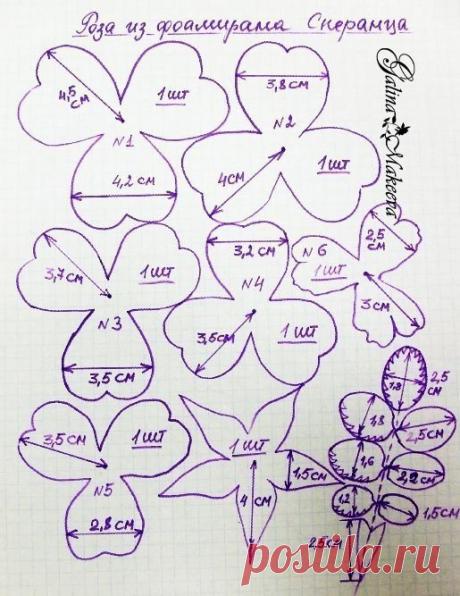 Роза из фоамирана Сперанца
Galina Makeeva
4,5 см
1 шт
N1
4,2 см
3,8 см
N2
4 см
1 шт
3,7 см
1 шт
N3
3,5 см
3,2 см
N4
3,5 см
1 шт
2,5 см
N6
1 шт
3 см
3,5 см
1 шт
N5
2,8 см
1 шт
4 см
1,5 см
2,5 см
1,8
2,5 см
1,6
2,2 см
1,2
1,5 см
2,5 см
postila.ru